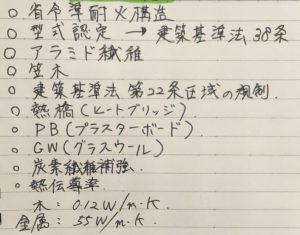 ○ 省令準耐火構造
○ 型式認定 → 建築基準法38条
○ アラミド繊維
○ 笠木
○ 建築基準法 第22条区域の規制.
○ 熱橋(ヒートブリッジ)
○ PB(プラスターボード)
○ GW(グラスウール)
○ 炭素繊維補強.
○ 熱伝導率.
木: 0.12W/m・K.
金属: 55W/m・K.